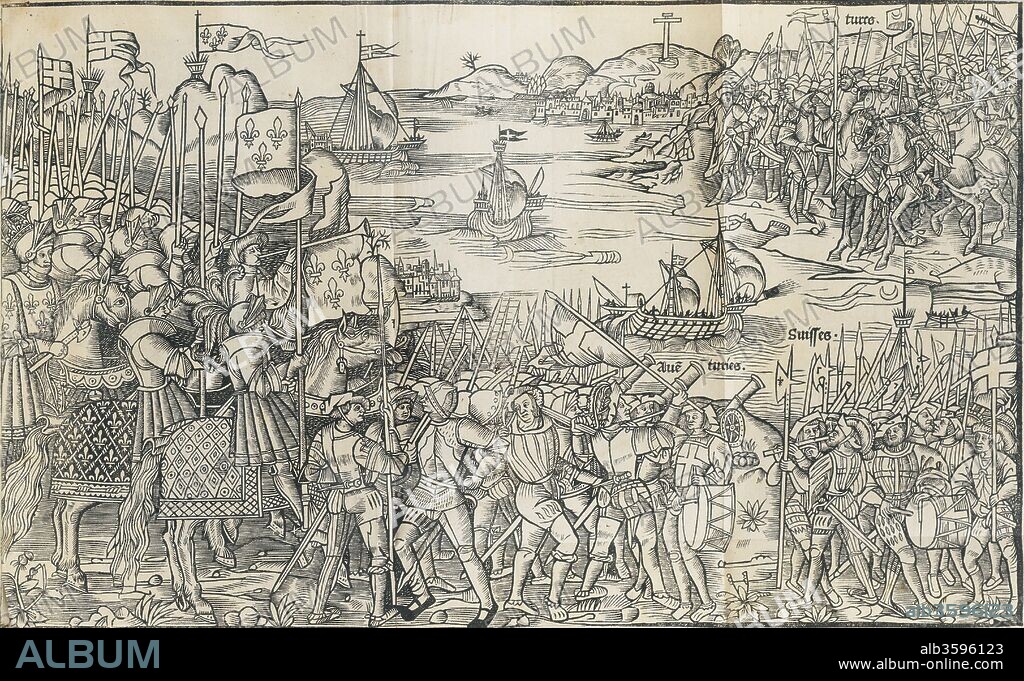 turcs.
Suisses.
Auē turies.
ALBUM
alb3596123
www.album-online.com